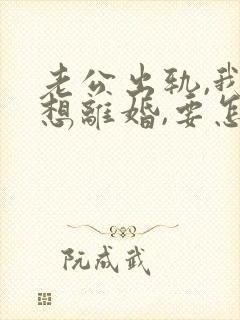 老公出轨,我
想離婚,要怎
阮成武